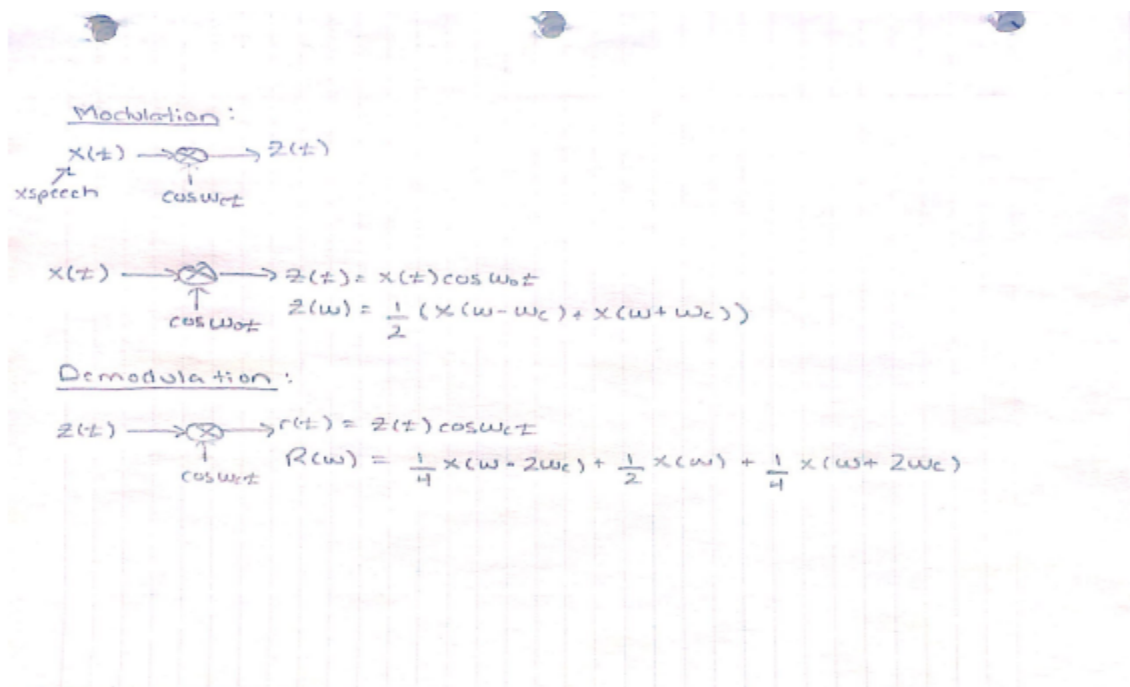 Modulation:
x(t) → ⊗ → z(t)
↑
xspeech cosωct
x(t) → ⊗ → z(t) = x(t) cos ω0t
↑
cosω0t Z(ω) = 1/2 (X(ω-ωc) + X(ω+ωc))
Demodulation:
z(t) → ⊗ → r(t) = z(t) cosωct
↑
cosωct R(ω) = 1/4 X(ω-2ωc) + 1/2 X(ω) + 1/4 X(ω+2ωc)